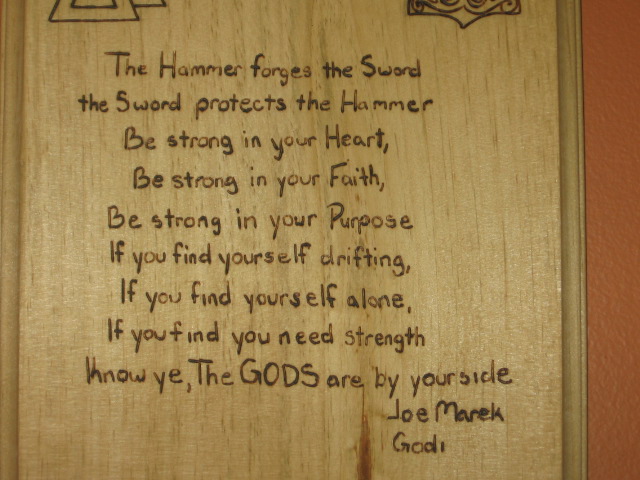 The Hammer forges the Sword
the Sword protects the Hammer
Be strong in your Heart,
Be strong in your Faith,
Be strong in your Purpose
If you find yourself drifting,
If you find yourself alone,
If you find you need strength
Know ye, The GODS are by yourside
Joe Marek
Godi